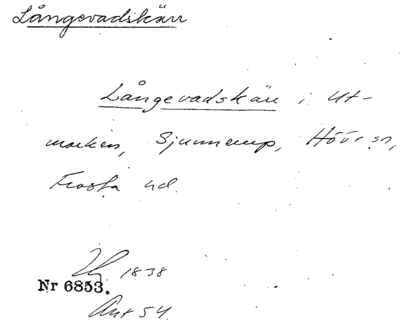 Långevadskärr
Långevadskärr i ut-
marken, Sjunnerup, Höörs sn,
Frosta hd.
1838
Nr 6853.
54.